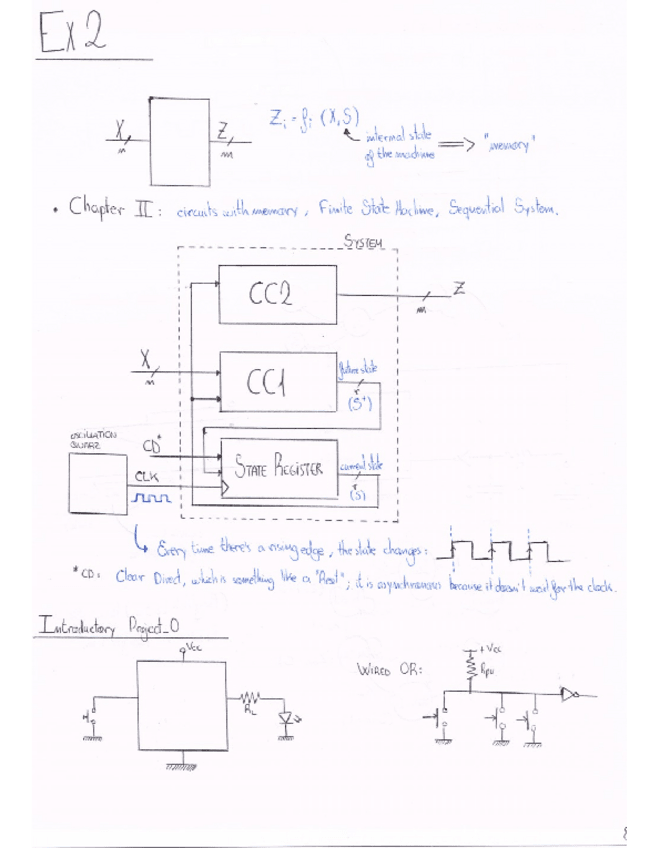 Ex2
X
Z
Zi = fi (X,S)
internal state
of the machine
=> "memory"
m
m
• Chapter II: circuits with memory, Finite State Machine, Sequential System.
SYSTEM
CC2
Z
m
X
m
CC1
future state
(S+)
OSCILLATION
QUARZ
CD*
CLK
STATE REGISTER
current state
(S)
Every time there's a rising edge, the state changes:
*CD: Clear Direct, which is something like a "Rest"; it is asynchronous because it doesn't wait for the clock.
Introductory Project_0
Vcc
RL
WIRED OR:
+Vcc
Rpu